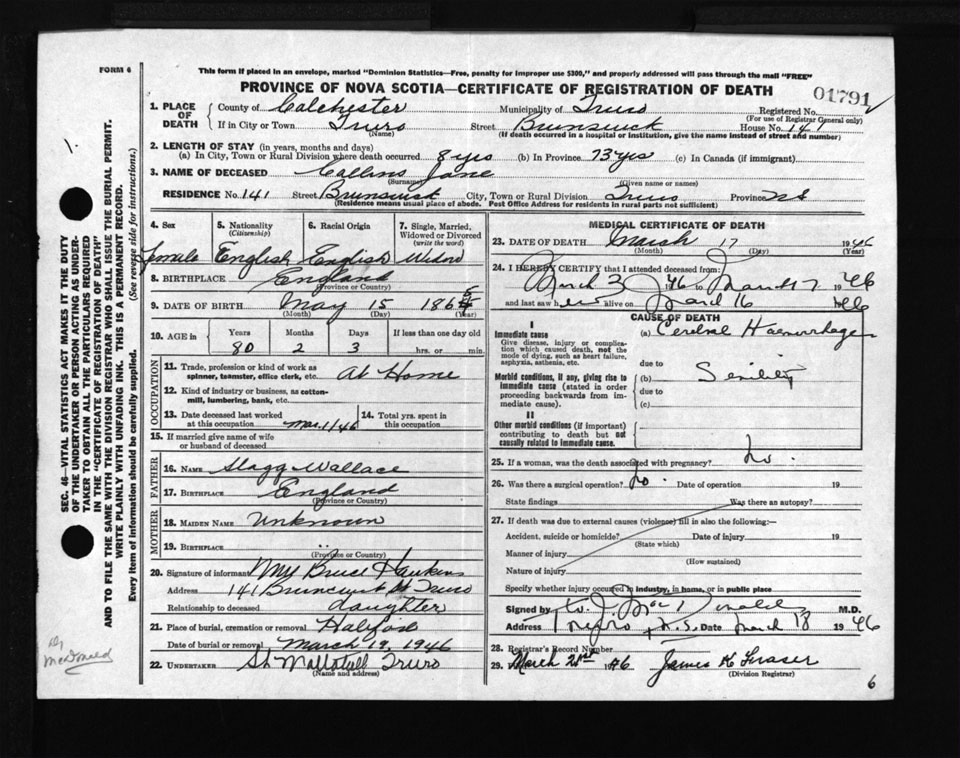 FORM 6
This form if placed in an envelope, marked "Dominion Statistics—Free, penalty for improper use $300," and properly addressed will pass through the mail "FREE"
PROVINCE OF NOVA SCOTIA—CERTIFICATE OF REGISTRATION OF DEATH
01791
1. PLACE OF DEATH
County of Colchester Municipality of Truro Registered No.
(For use of Registrar General only)
If in City or Town Truro Street Brunswick House No. 141
(Name) (If death occurred in a hospital or institution, give the name instead of street and number)
2. LENGTH OF STAY (in years, months and days)
(a) In City, Town or Rural Division where death occurred 8 yrs (b) In Province 73 yrs (c) In Canada (if immigrant)
3. NAME OF DECEASED Collins Jane
(Surname) (Given name or names)
RESIDENCE No. 141 Street Brunswick City, Town or Rural Division Truro Province N S
(Residence means usual place of abode. Post Office Address for residents in rural parts not sufficient)
4. Sex 5. Nationality (Citizenship) 6. Racial Origin 7. Single, Married, Widowed or Divorced (write the word)
female English English Widow
8. BIRTHPLACE England
(Province or Country)
9. DATE OF BIRTH May 15 186
(Month) (Day) (Year)
10. AGE in Years Months Days If less than one day old
80 2 3 hrs. or min.
OCCUPATION
11. Trade, profession or kind of work as spinner, teamster, office clerk, etc. At Home
12. Kind of industry or business, as cotton-mill, lumbering, bank, etc.
13. Date deceased last worked at this occupation Mar 1/46 14. Total yrs. spent in this occupation
15. If married give name of wife or husband of deceased
FATHER
16. NAME Stagg Wallace
17. BIRTHPLACE England
(Province or Country)
MOTHER
18. MAIDEN NAME Unknown
19. BIRTHPLACE
(Province or Country)
20. Signature of informant Mrs Bruce Hawkins
Address 141 Brunswick St Truro
Relationship to deceased daughter
21. Place of burial, cremation or removal Halifax
Date of burial or removal March 19, 1946
22. UNDERTAKER Truro
(Name and address)
MEDICAL CERTIFICATE OF DEATH
23. DATE OF DEATH March 17 1946
(Month) (Day) (Year)
24. I HEREBY CERTIFY that I attended deceased from:
March 3 1946 to March 17 1946
and last saw her alive on March 16 1946
CAUSE OF DEATH
I
Immediate cause
Give disease, injury or complication which caused death, not the mode of dying, such as heart failure, asphyxia, asthenia, etc.
(a) Cerebral Haemorrhage
due to
Morbid conditions, if any, giving rise to immediate cause (stated in order proceeding backwards from immediate cause).
(b) Senility
due to
(c)
II
Other morbid conditions (if important) contributing to death but not causally related to immediate cause.
25. If a woman, was the death associated with pregnancy? No.
26. Was there a surgical operation? No. Date of operation 19
State findings Was there an autopsy?
27. If death was due to external causes (violence) fill in also the following:—
Accident, suicide or homicide? Date of injury 19
(State which)
Manner of injury
(How sustained)
Nature of injury
Specify whether injury occurred in industry, in home, or in public place
Signed by W. J. MacDonald M.D.
Address Truro, N.S. Date March 18 1946
28. Registrar's Record Number
29. March 21st 1946 James K Fraser
(Division Registrar)
6
SEC. 46—VITAL STATISTICS ACT MAKES IT THE DUTY
OF THE UNDERTAKER OR PERSON ACTING AS UNDER-
TAKER TO OBTAIN ALL THE PARTICULARS REQUIRED
IN THE "CERTIFICATE OF REGISTRATION OF DEATH"
AND TO FILE THE SAME WITH THE DIVISION REGISTRAR WHO SHALL ISSUE THE BURIAL PERMIT.
WRITE PLAINLY WITH UNFADING INK. THIS IS A PERMANENT RECORD.
Every item of information should be carefully supplied. (See reverse side for instructions.)
McDonald